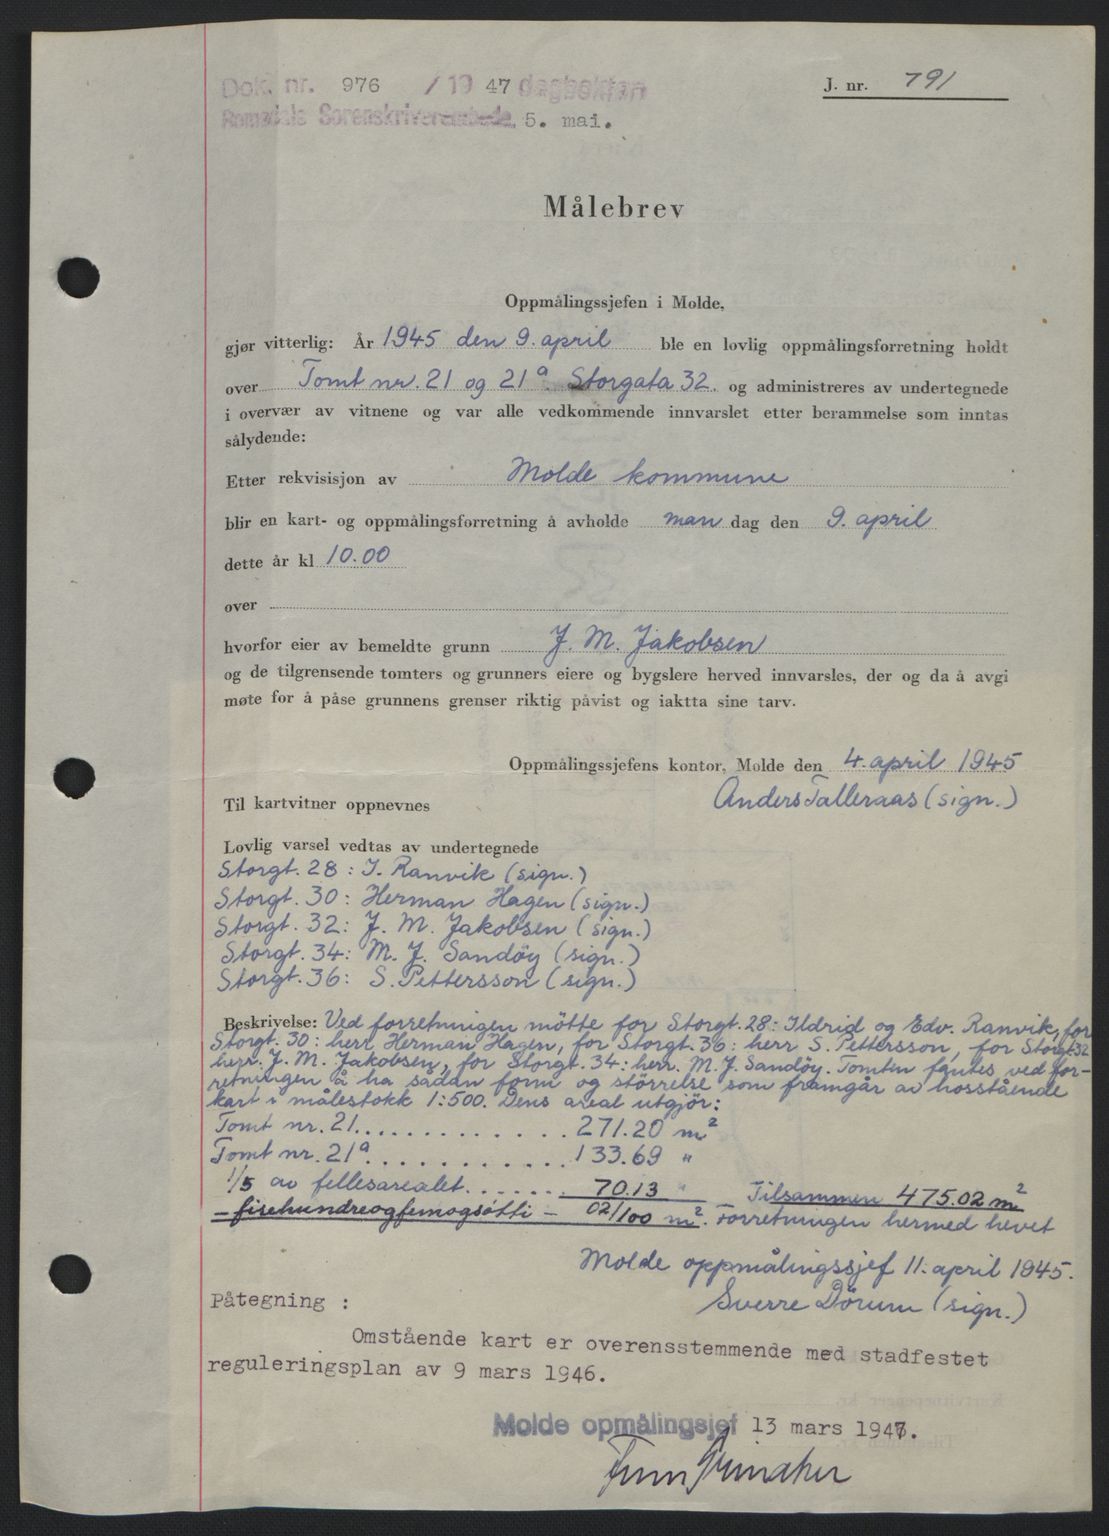 Dok. nr. 976 / 19 47 dagboken
Romsdals Sorenskriverembede, 5. mai.
J. nr. 791
Målebrev
Oppmålingssjefen i Molde,
gjør vitterlig: År 1945 den 9. april ble en lovlig oppmålingsforretning holdt
over Tomt nr. 21 og 21a. Storgata 32. og administreres av undertegnede
i overvær av vitnene og var alle vedkommende innvarslet etter berammelse som inntas
sålydende:
Etter rekvisisjon av Molde kommune
blir en kart- og oppmålingsforretning å avholde man dag den 9. april
dette år kl 10.00
over
hvorfor eier av bemeldte grunn J. M. Jakobsen
og de tilgrensende tomters og grunners eiere og bygslere herved innvarsles, der og da å avgi
møte for å påse grunnens grenser riktig påvist og iaktta sine tarv.
Oppmålingssjefens kontor, Molde den 4. april 1945
Anders Talleraas (sign.)
Til kartvitner oppnevnes
Lovlig varsel vedtas av undertegnede
Storgt. 28: I. Ranvik (sign.)
Storgt. 30: Herman Hagen (sign.)
Storgt. 32: J. M. Jakobsen (sign.)
Storgt. 34: M. J. Sandöy (sign.)
Storgt. 36: S. Pettersson (sign.)
Beskrivelse: Ved forretningen mötte for Storgt. 28: Ildrid og Edv. Ranvik, for
Storgt. 30: herr Herman Hagen, for Storgt. 36: herr S. Pettersson, for Storgt 32
herr. J. M. Jakobsen, for Storgt. 34: herr. M. J. Sandöy. Tomten fantes ved for-
retningen å ha sådan form og störrelse som framgår av hosstående
kart i målestokk 1:500. Dens areal utgjör:
Tomt nr. 21.............271.20 m2
Tomt nr. 21a............133.69 "
1/5 av fellesarealet.......70.13 " Tilsammen 475.02 m2
- firehundreogfemogsötti - 02/100 m2. Forretningen hermed hevet
Molde oppmålingssjef 11. april 1945.
Sverre Dörum (sign.)
Påtegning :
Omstående kart er overensstemmende med stadfestet
reguleringsplan av 9 mars 1946.
Molde opmålingsjef 13 mars 1947.
Finn